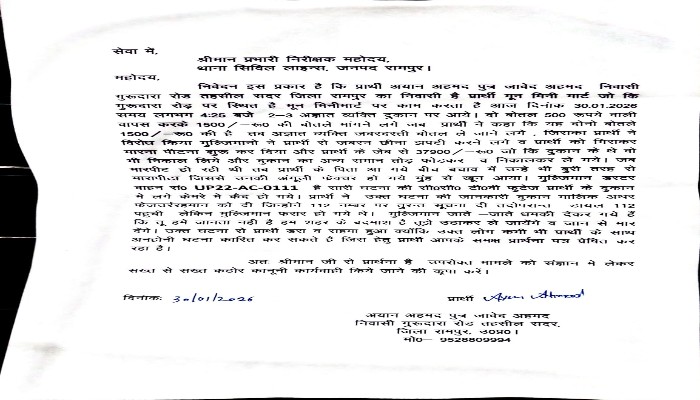 सेवा में,
श्रीमान प्रभारी निरीक्षक महोदय,
थाना सिविल लाइन्स, जनपद रामपुर।
महोदय,
निवेदन इस प्रकार है कि प्रार्थी अयान अहमद पुत्र जावेद अहमद निवासी
गुरूद्वारा रोड तहसील सदर जिला रामपुर का निवासी है प्रार्थी मून मिनी मार्ट जो कि
गुरूद्वारा रोड़ पर स्थित है मून मिनीमार्ट पर काम करता है आज दिनांक 30.01.2026
समय लगभग 4:25 बजे 2–3 अज्ञात व्यक्ति दुकान पर आये। दो बोतल 500 रूपये वाली
वापस करके 1500/–रू0 की बोतले मांगने लगे जब प्रार्थी ने कहा कि यह दोनो बोतले
1500/–रू0 की है तब अज्ञात व्यक्ति जबरदस्ती बोतल ले जाने लगे, जिसका प्रार्थी ने
विरोध किया मुल्जिमानो ने प्रार्थी से जबरन छीना झपटी करने लगे व प्रार्थी को गिराकर
मारना पीटना शुरू कर दिया और प्रार्थी के जेब से 37900/–रू0 जो कि दुकान के थे वो
भी निकाल लिये और दुकान का अन्य सामान तोड़ फोडकर व निकालकर ले गये। जब
मारपीट हो रही थी तब प्रार्थी के पिता आ गये बीच बचाव में उन्हे भी बुरी तरह से
मारापीटा जिससे उनकी अंगूली फ्रेक्चर हो गये मुंह से खून आया। मुल्जिमान डस्टर
वाहन सं0 UP22-AC-0111 है सारी घटना की सी0सी0 टी0वी फुटेज प्रार्थी के दुकान
में लगे कैमरे में कैद हो गये। प्रार्थी ने उक्त घटना की जानकारी दुकान मालिक अथर
को दी जिन्होंने 112 नम्बर पर तुरन्त सूचना दी तदोपरान्त डायल 112
पहुची लेकिन मुल्जिमान फरार हो गये थे। मुल्जिमान जाते –जाते धमकी देकर गये हैं
कि तू हमें जानता नही है हम शहर के बदमाश है तुझे उठाकर ले जायेंगे व जान से मार
देंगे। उक्त घटना से प्रार्थी डरा व सहमा हुआ क्योंकि उक्त लोग कभी भी प्रार्थी के साथ
अनहोनी घटना कारित कर सकते है जिस हेतु प्रार्थी आपके समक्ष प्रार्थना पत्र प्रेषित कर
रहा है।
अतः श्रीमान जी से प्रार्थना है उपरोक्त मामले को संज्ञान मे लेकर
सख्त से सख्त कठोर कानूनी कार्यवाही किये जाने की कृपा करें।
दिनांक: 30/01/2026 प्रार्थी Ayan Ahmad
अयान अहमद पुत्र जावेद अहमद
निवासी गुरूद्वारा रोड तहसील सदर,
जिला रामपुर, उ0प्र0।
मो0– 9528809994